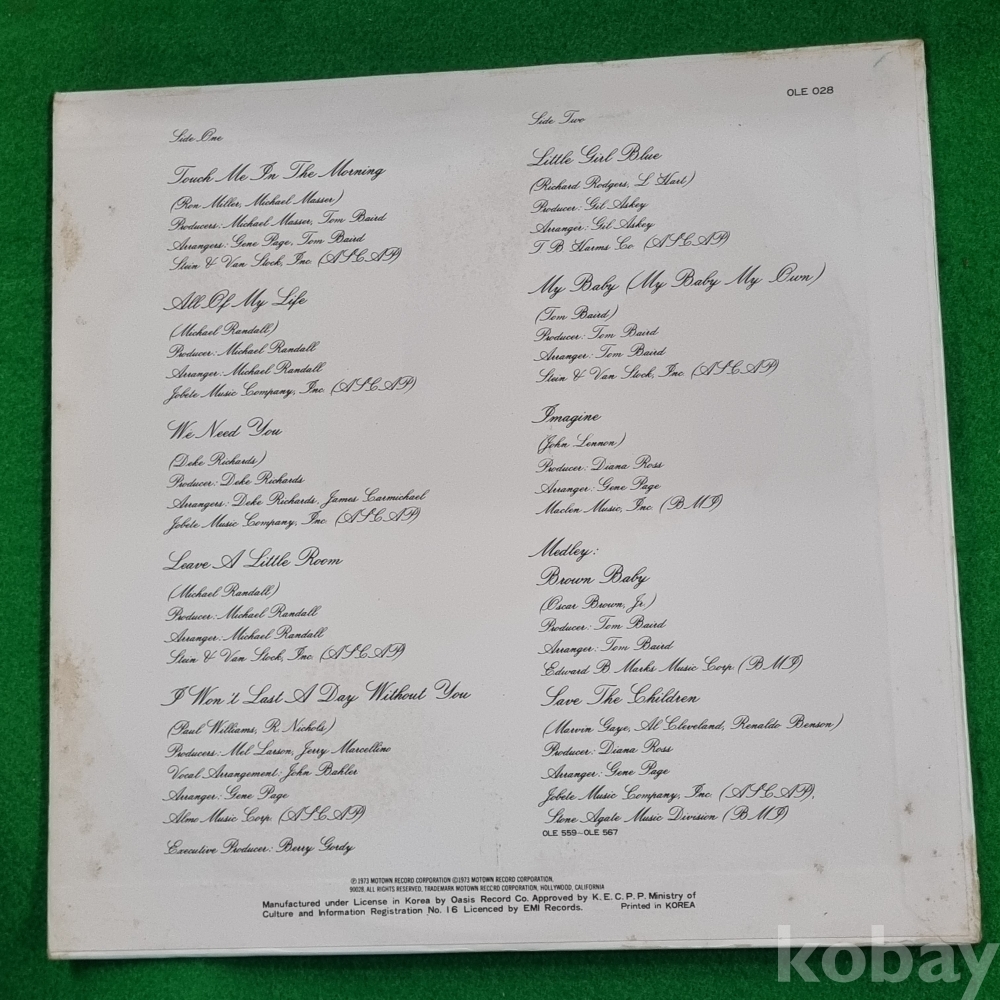 OLE 028
Side One
Touch Me In The Morning
(Ron Miller, Michael Masser)
Producers: Michael Masser, Tom Baird
Arrangers: Gene Page, Tom Baird
Stein & Van Stock, Inc. (ASCAP)
All Of My Life
(Michael Randall)
Producer: Michael Randall
Arranger: Michael Randall
Jobete Music Company, Inc. (ASCAP)
We Need You
(Deke Richards)
Producer: Deke Richards
Arrangers: Deke Richards, James Carmichael
Jobete Music Company, Inc. (ASCAP)
Leave A Little Room
(Michael Randall)
Producer: Michael Randall
Arranger: Michael Randall
Stein & Van Stock, Inc. (ASCAP)
I Won't Last A Day Without You
(Paul Williams, R. Nichols)
Producers: Mel Larson, Jerry Marcellino
Vocal Arrangement: John Bahler
Arranger: Gene Page
Almo Music Corp. (ASCAP)
Executive Producer: Berry Gordy
Side Two
Little Girl Blue
(Richard Rodgers, L. Hart)
Producer: Gil Askey
Arranger: Gil Askey
T B Harms Co. (ASCAP)
My Baby (My Baby My Own)
(Tom Baird)
Producer: Tom Baird
Arranger: Tom Baird
Stein & Van Stock, Inc. (ASCAP)
Imagine
(John Lennon)
Producer: Diana Ross
Arranger: Gene Page
Maclen Music, Inc. (BMI)
Medley:
Brown Baby
(Oscar Brown, Jr.)
Producer: Tom Baird
Arranger: Tom Baird
Edward B Marks Music Corp (BMI)
Save The Children
(Marvin Gaye, Al Cleveland, Renaldo Benson)
Producer: Diana Ross
Arranger: Gene Page
Jobete Music Company, Inc. (ASCAP),
Stone Agate Music Division (BMI)
OLE 559~OLE 567
℗ 1973 MOTOWN RECORD CORPORATION ©1973 MOTOWN RECORD CORPORATION,
90028. ALL RIGHTS RESERVED, TRADEMARK MOTOWN RECORD CORPORATION, HOLLYWOOD, CALIFORNIA
Manufactured under License in Korea by Oasis Record Co. Approved by K.E.C.P.P. Ministry of
Culture and Information Registration No. 16 Licenced by EMI Records. Printed in KOREA
kobay